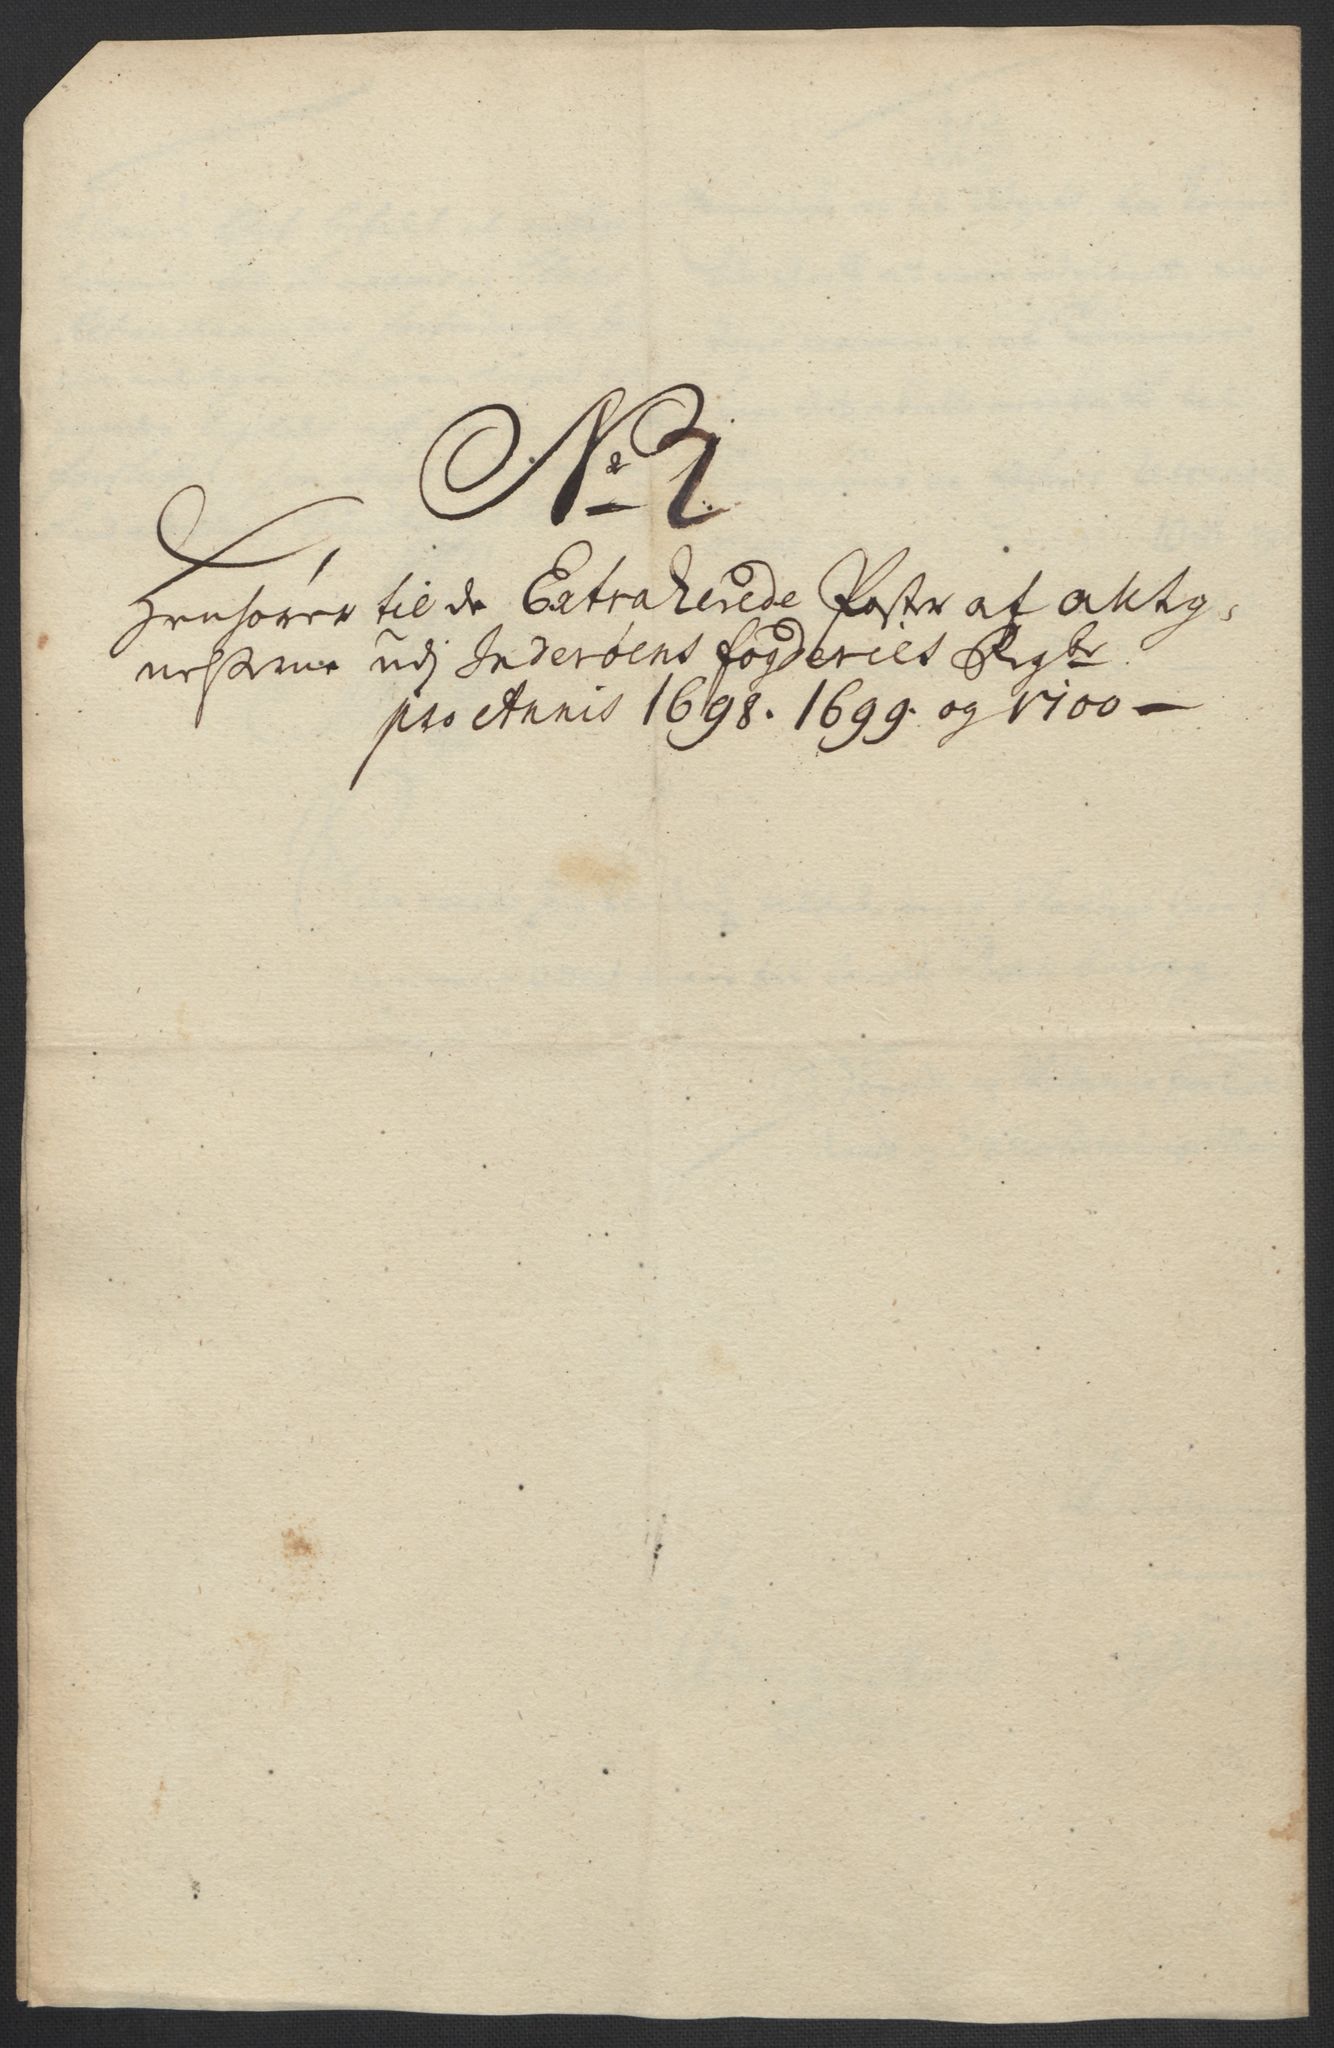 No 2
Henhører til de Extraherede Poster af antig-
nelserne udj Inderøens fogderies Regbr
pro Annis 1698. 1699. og 1700 —